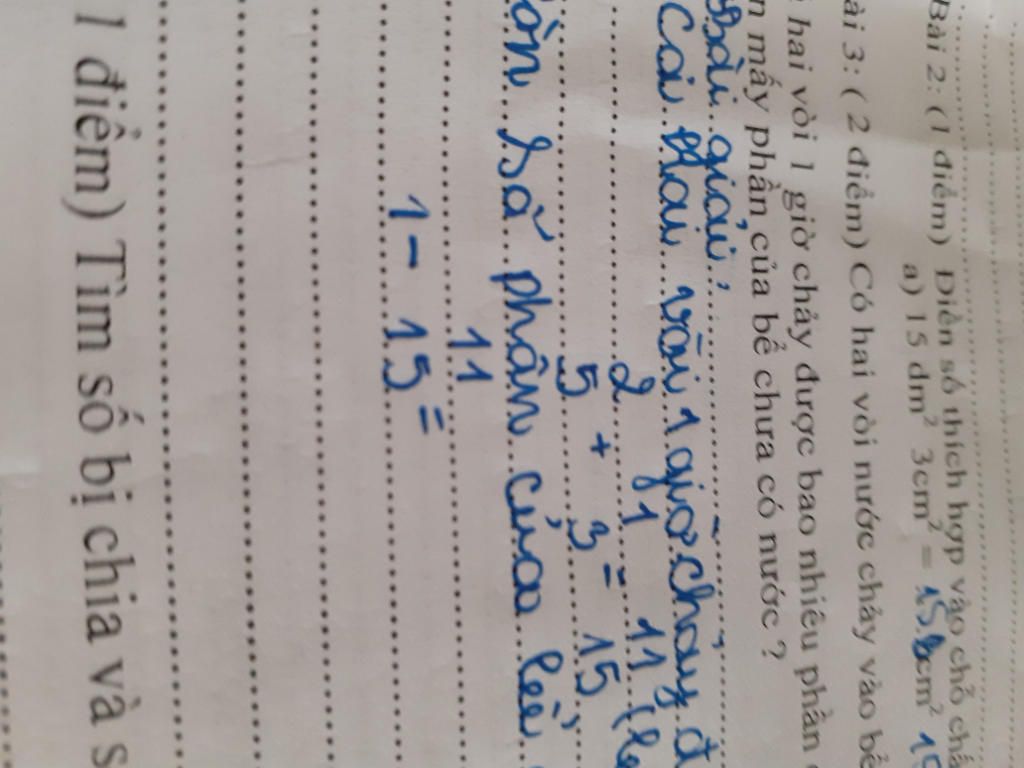 Bài 2: ( 1 điểm) Điền số thích hợp vào chỗ
a) 15 dm² 3cm² = cm²
ài 3: ( 2 điểm) Có hai vòi nước chảy vào bể
hai vòi 1 giờ chảy được bao nhiêu phần
n mấy phần của bể chưa có nước ?
Bài giải
Cả hai vòi 1 giờ chảy đ
2 1 11
5 + 3 = 15
òn số phần của bể
11
1 - 15 =
1 điểm) Tìm số bị chia và s